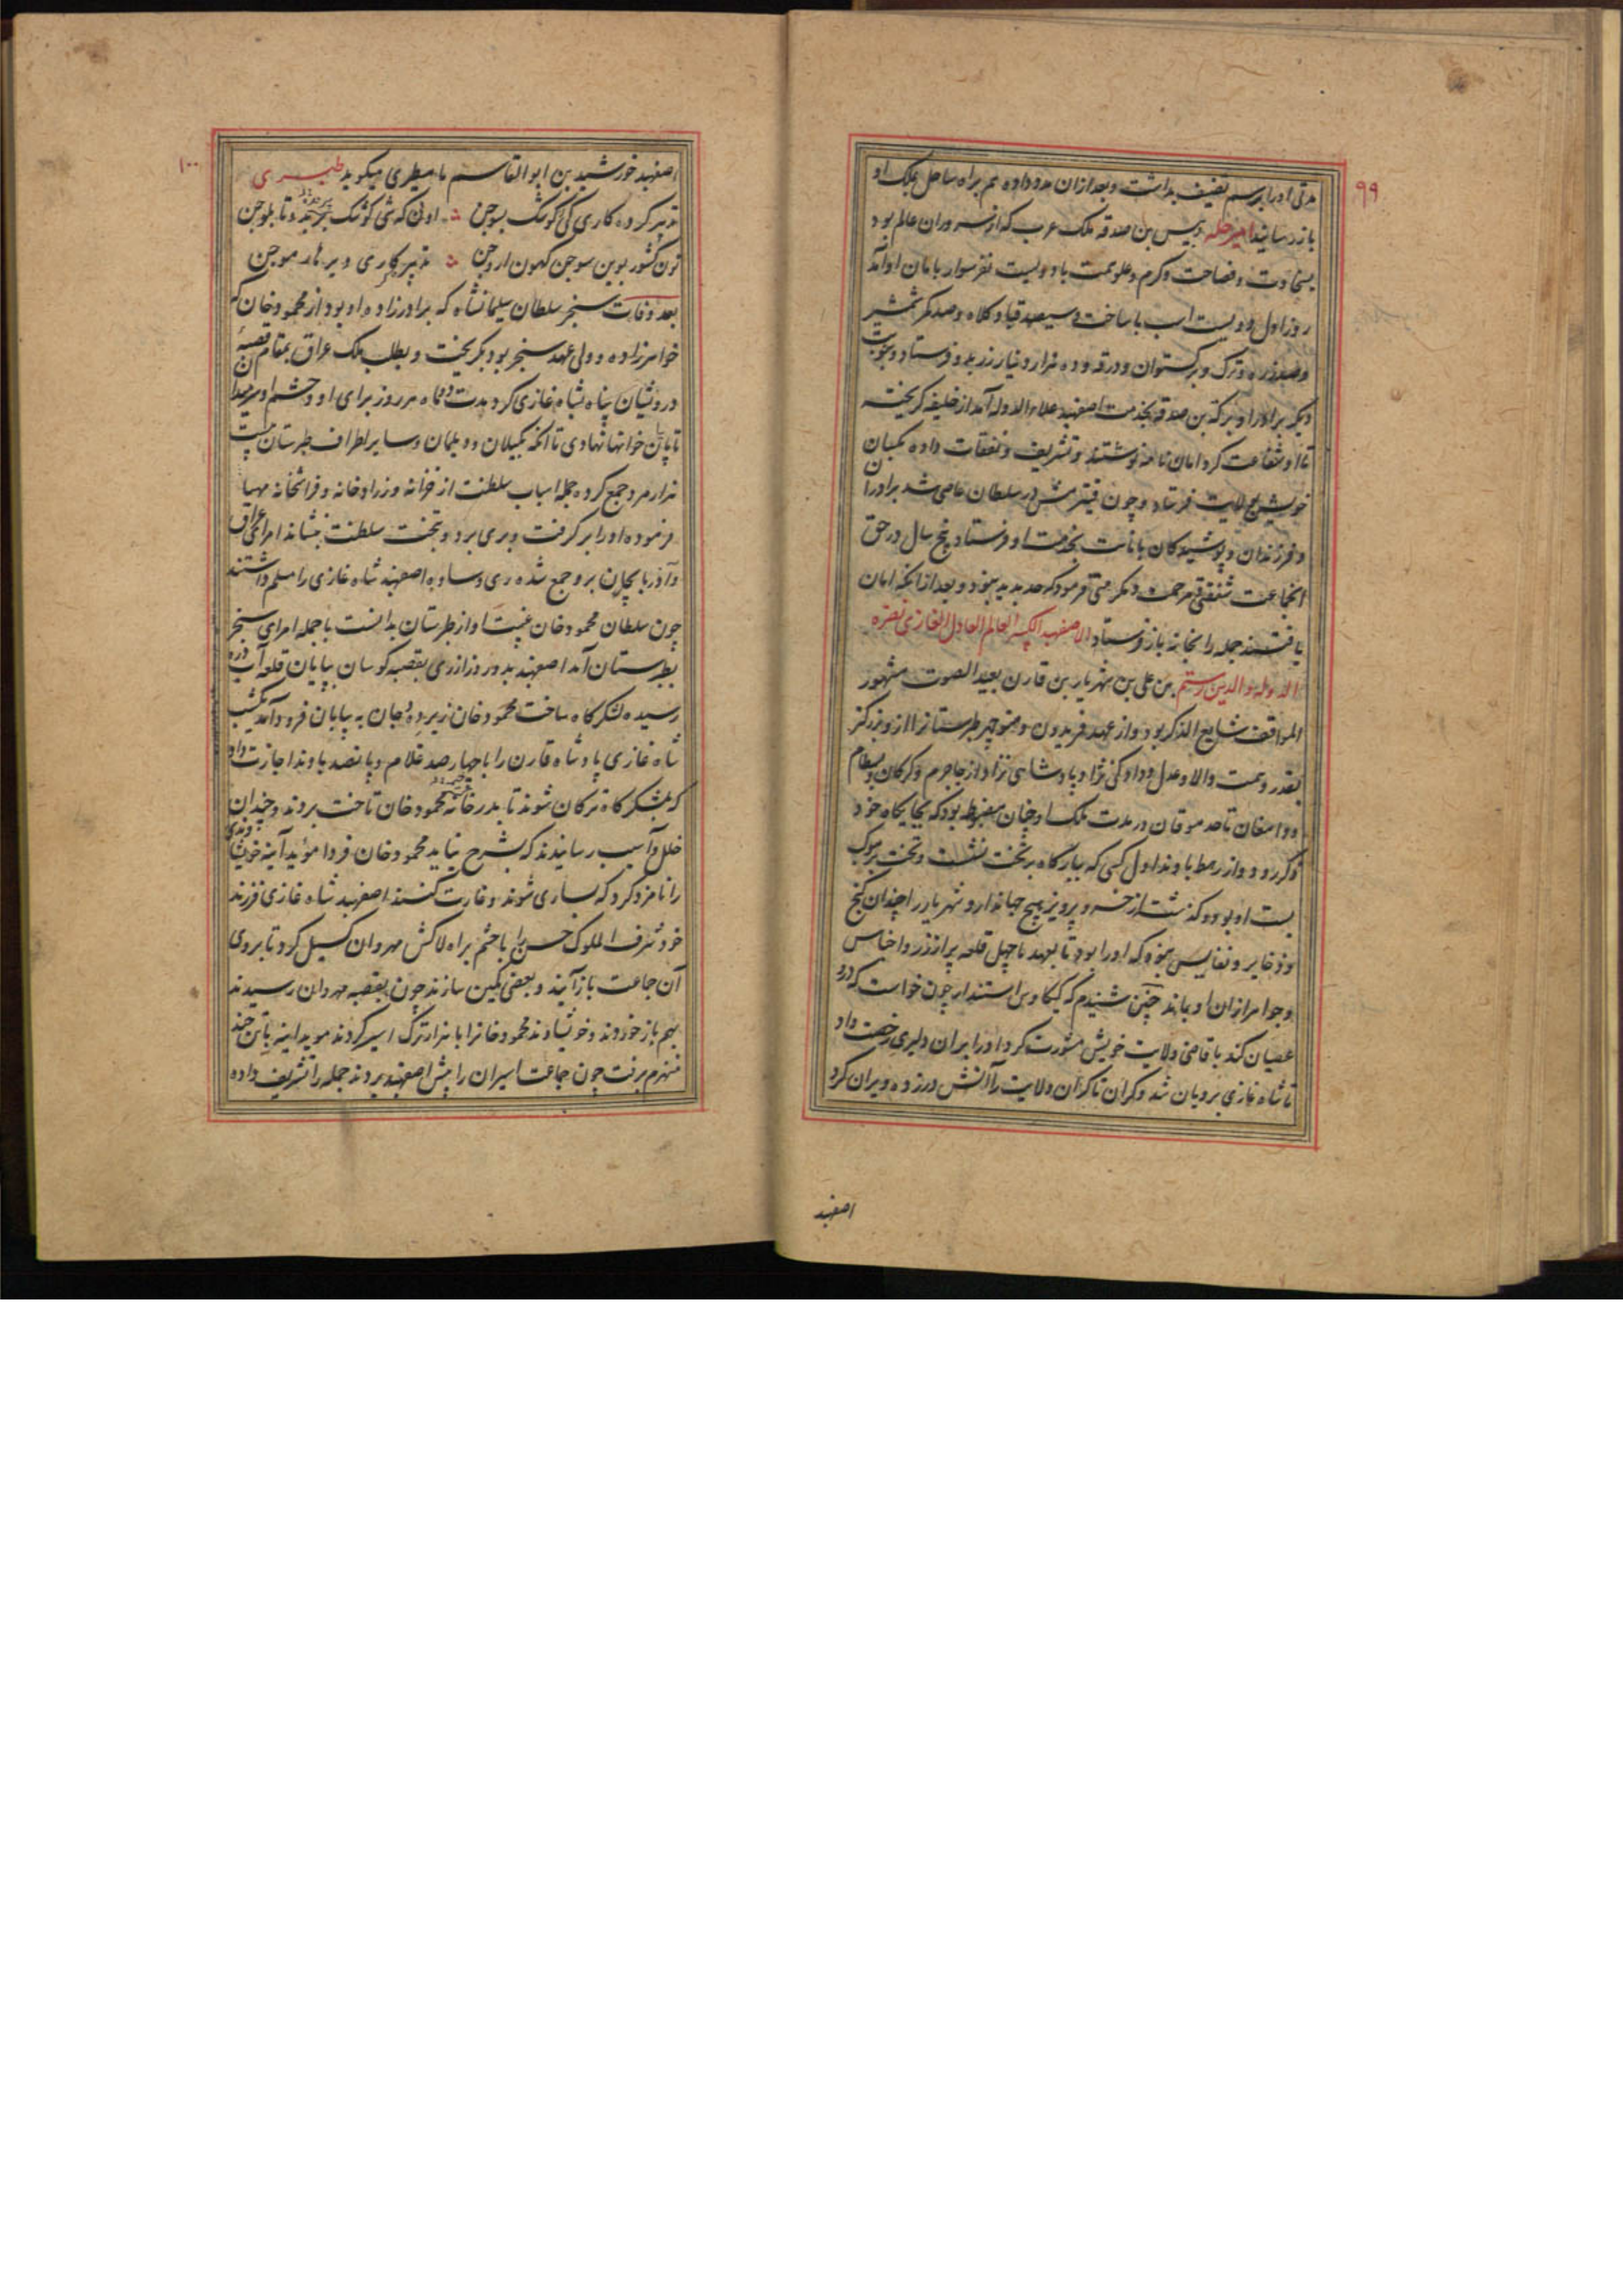 ۹۹
مدتی او را برسم تضیف بداشت و بعد از ان مدد داده هم براه ساحل بملک او
باز رسانید امیر حله دبیس بن صدقه ملک عرب که از سروران عالم بود
بسخاوت و فصاحت و کرم و علو همت با دویست نفر سوار بامان او آمد
روز اول دویست اسب با ساخت و سیصد قبا و کلاه و صد کمر شمشیر
و صد زره و ترک و برکستوان و درقه و ده هزار دینار زر بدو فرستاد و بنوبت
دیکر برادر او برکة بن صدقه بخدمت اصفهبد علاء الدوله آمد از خلیفه کریخته
تا او شفاعت کرد امان نامه نوشتند و تشریف و نفقات داده بکسان
خویش بولایت فرستاد و چون قیتر مش در سلطان عاصی شد برادران
و فرزندان و پوشیدکان بامانت بخدمت او فرستاد پنج سال در حق
انجماعت شفقتی و مرحمت و مکرمتی فرمود که حد پدید نبود و بعد از انکه امان
یافتند جمله را بخانه باز فرستاد الاصفهبد الکبیر العالم العادل الغازی نصرة
الدوله و الدین رستم بن علی بن شهریار بن قارن بعید الصوت مشهور
المواقف شایع الذکر بود و از عهد فریدون و منوچهر طبرستانرا از و بزرکتر
بقدر و همت والا و عدل و داد کنی نژاد پادشاهی نزاد از جاجرم و کرکان و بسطام
و دامغان تا حد موقان در مدت ملک او چنان مضبوط بود که بجایکاه خود
ذکر رود و از رهط باوند اول کسی که ببارکاه بر تخت نشست و تخت بر موکب
بست او بود و کذشت از خسرو پرویز هیچ جهاندار و شهریار را چندان کنج
و ذخایر و نفایس نبود که او را بود تا بعهد ما چهل قلعه پر از زر و اجناس
و جواهر از ان او بماند چنین شنیدم که کیکاوس استندار چون خواست که درو
عصیان کند با قاضی ولایت خویش مشورت کرد او را بر ان دلیری رخصت داد
تا شاه غازی برویان شد و کران تا کران ولایت را آتش در زده ویران کرد
اصفهبد
۱۰۰
اصفهبد خورشید بن ابو القاسم مامطیری میکوید طبری
تدبیر کرده کاری کی کوشک بوجن ؞ اونی که شی کوشک تا بلوجن
تون کشور بوین سوجن کهون اروجن ؞ تدبیر کاری ویر نار موجن
بعد وفات سنجر سلطان سلیمانشاه که برادرزاده او بود از محمود خان که
خواهرزاده و ولی عهد سنجر بود بکریخت و بطلب ملک عراق بمقام قصبهٔ
درویشان پناه بشاه غازی کرد مدت دو ماه هر روز برای او و حشم او
تا پایان خوانها نهادی تا آنکه بکیلان و دیلمان و سایر اطراف طبرستان بیست
هزار مرد جمع کرده جمله اسباب سلطنت از خزانه و زرادخانه و فراشخانه مهیا
فرموده او را بر کرفت و بری برد و بتخت سلطنت بنشاند امرای عراق
و آذربایجان برو جمع شده ری و ساوه باصفهبد شاه غازی را مسلم داشتند
چون سلطان محمود خان غیبت او از طبرستان بدانست با جمله امرای سنجر
بطبرستان آمد اصفهبد بدو روز از ری بقصبه کوسان بپایان قلعه آب دره
رسیده لشکرکاه ساخت محمود خان زیر ده وجان به پایان فرود آمد یکشب
شاه غازی پادشاه قارن را با چهار صد غلام و پانصد باوند اجازت داد
که بلشکرکاه ترکان شوند تا بدر خانه محمود خان تاخت بردند و چندان
خلل و آسیب رسانیدند که بشرح نیاید محمود خان فردا مؤید آیبه خویشاوندی
را نامزد کرد که بساری شوند و غارت کنند اصفهبد شاه غازی فرزند
خود شرف الملوک حسن را با حشم براه لاکش مهروان کسیل کرد تا بروی
آن جماعت باز آیند و بعضی کمین سازند چون بقصبه مهروان رسیدند
بهم باز خوردند و خویشاوند محمود خانرا با هزار ترک اسیر کردند موید ایبه با تنی چند
منهزم برفت چون جماعت اسیران را پیش اصفهبد بردند جمله را تشریف داده